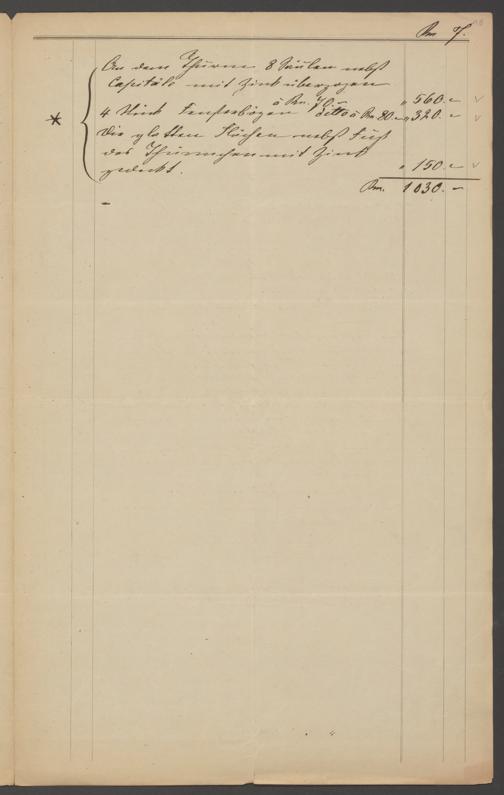 Rm 7.
An dem Thurm 8 Säulen nebst
Capitäls mit Zink überzogen
à Rm. 70.– „ 560.–
* 4 Stück Fensterbögen ditto à Rm 80.– „ 320.–
Die glatten Flächen nebst
des Thürmchen mit Zink
gedeckt. „ 150.–
Rm. 1030.–